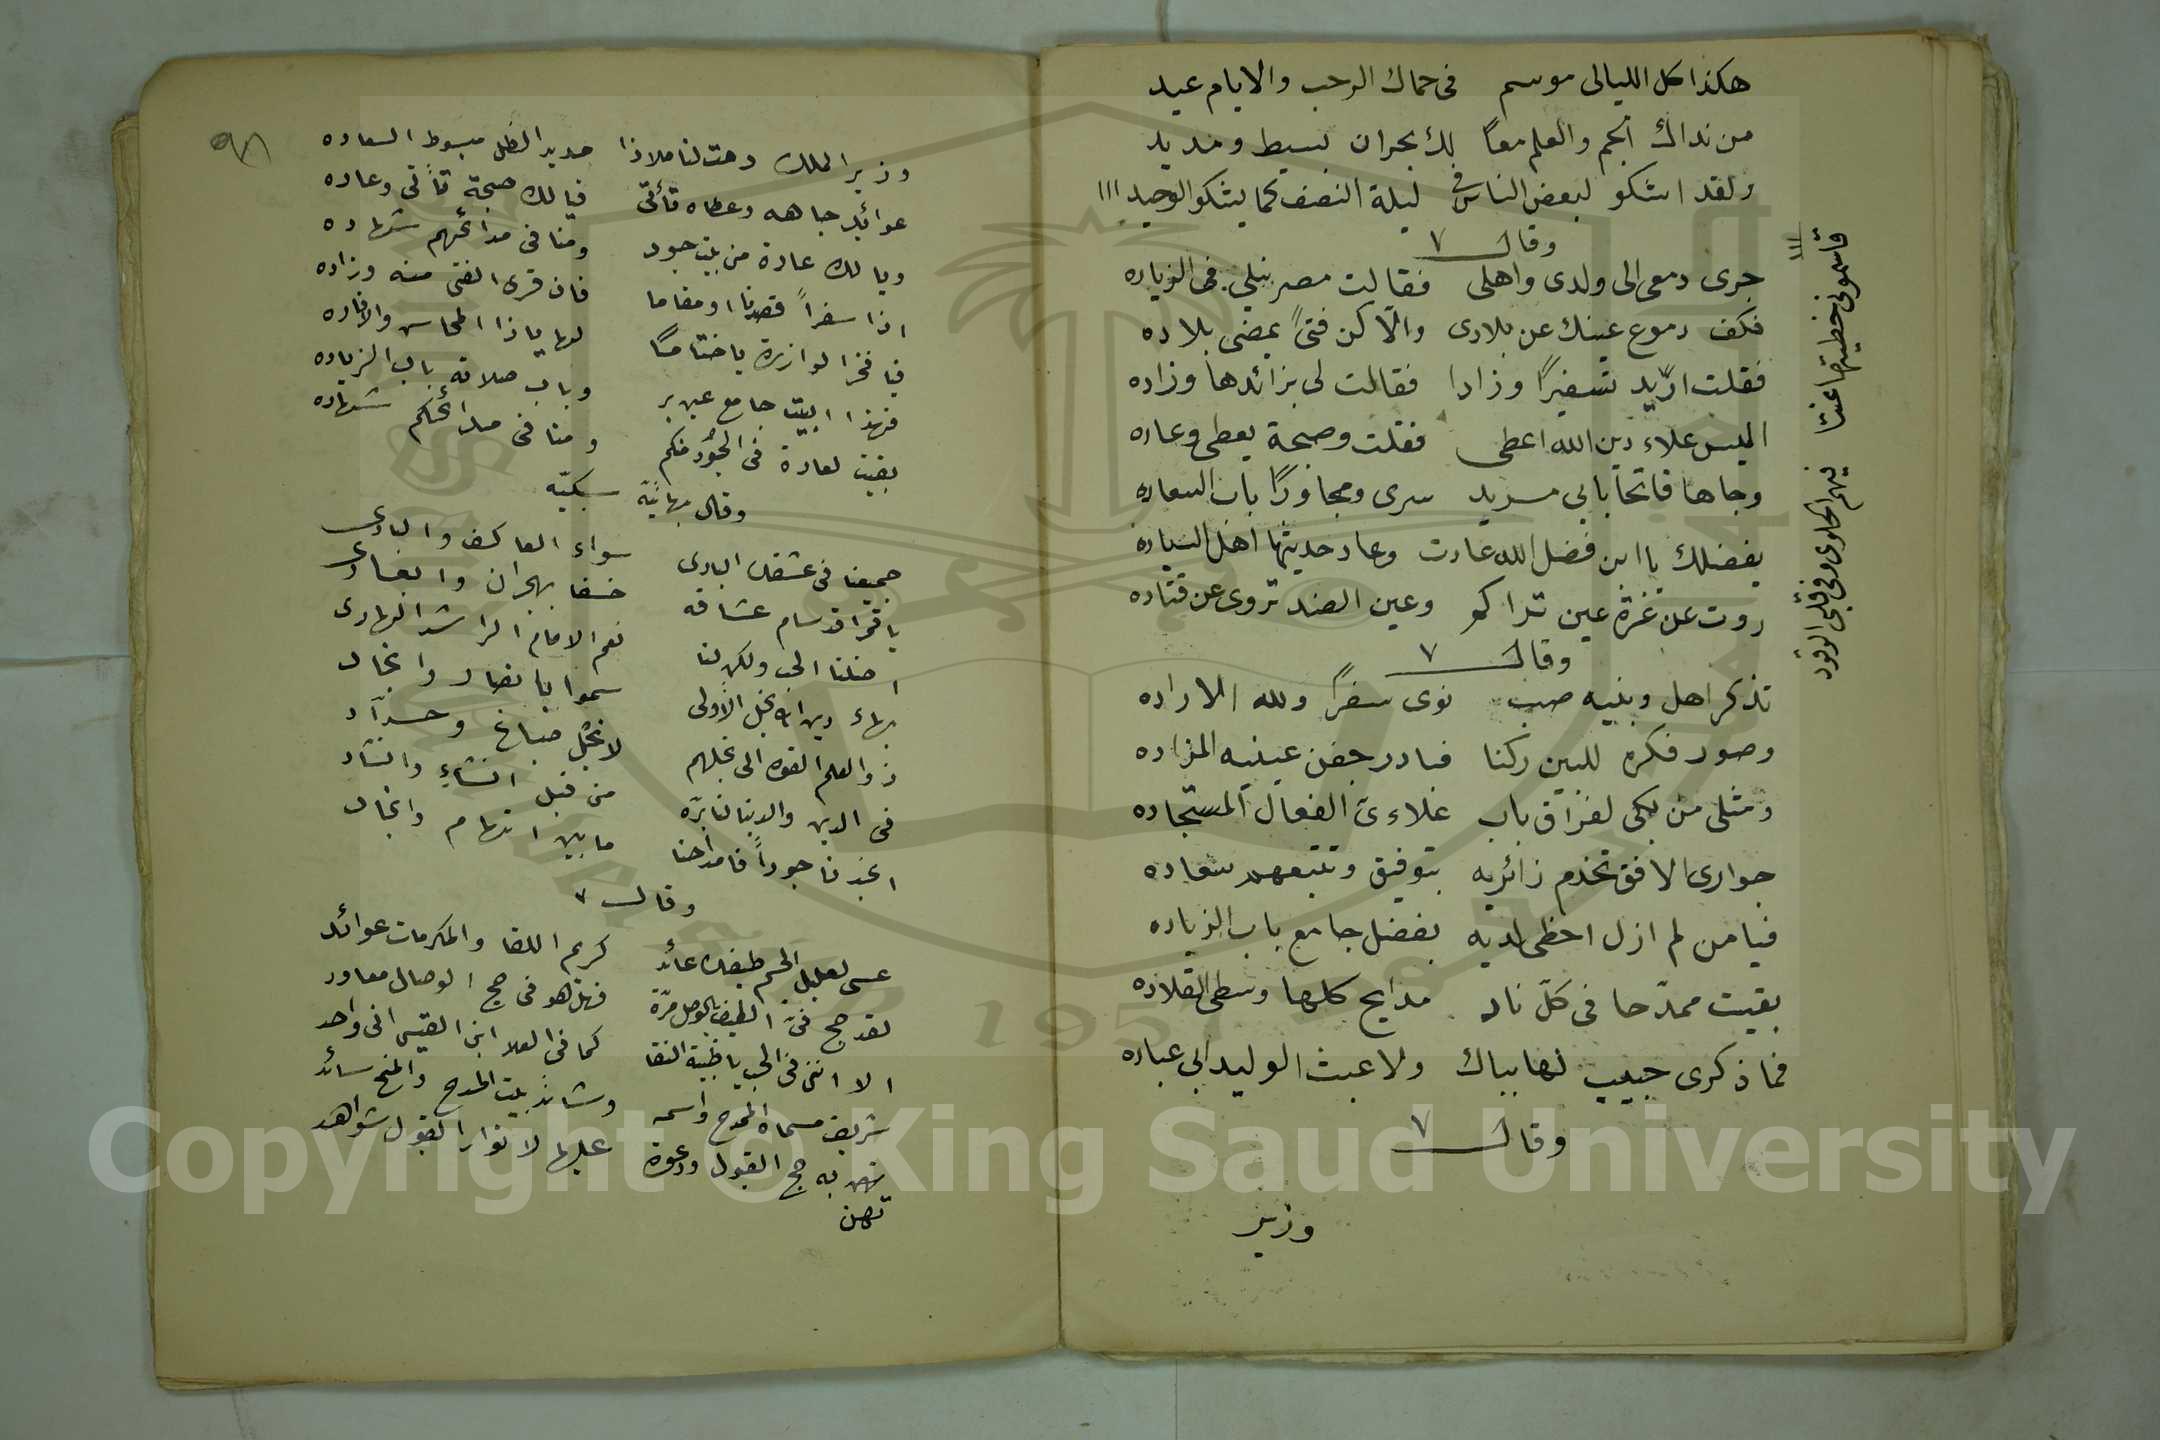 هكذا كل الليالى موسم فى حماك الرحب والايام عيد
من نداك الجم والعلم معًا لك بحران بسيط ومديد
ولقد اشكو لبعض الناس فى ليلة النصف كما يشكو الوحيد ااا
فأسمونى خطيتها عندنا فيهم الحلوى وفى قلبى الوقود
وقال ٧
جرى دمعى الى ولدى واهلى فقالت مصر نيلى فى الزياده
فكف دموع عينك عن بلادى والّا كن فتىً يمضى بلاده
فقلت اريد تسفيرًا وزادا فقالت لى بزائدها وزاده
اليس علاء دين الله اعطى فقلت وصبحة يعطى وعاده
وجاها فاتحا بابى مزيد سرى ومجاورًا باب السعاده
بفضلك يا ابن فضل الله عادت وعاد حديثها اهل السياده
روت عن غزة عين تراكم وعين الضد تروى عن قتاده
وقال ٧
تذكر اهل وبنيه صب نوى سفرًا ولله الاراده
وصور فكره للبين ركنا فبادر جفن عينيه المزاده
ومثلى من بكى لفراق باب علاءىّ الفعال المستجاده
جوارى الافق تخدم زائريه بتوفيق وتتبعهم سعاده
فيا من لم ازل احظى لديه بفضل جامع باب الزياده
بقيت ممدّحا فى كلّ ناد مدايح كلها وسطى القلاده
فما ذكرى حبيب لها ببابك ولا عبث الوليد ابى عباده
وقال ٧
وزير
وزير الملك دمت لنا ملاذا مديد الظل مبسوط السعاده
عوائد جاهه وعطاه تأتى فيا لك صبحة تأتى وعاده
ويا لك عادة من بيت جود ومنا فى مدائحهم شهاده
اذا سفراً قصدنا او مقاما فان قرى الفتى منه وزاده
فيا فخر الوازرة يا ختامًا لها يا ذا المحاسن والافاده
فهذا البيت جامع عين بر وباب صلاته باب الزياده
بقيت لعادة فى الجود منكم ومنا فى مدائحكم شهاده
وقال بهائيّة سبكيّه
جميعنا فى عشقك البادى سواء العاكف والبادى
يا قمرا قد سام عشاقه خسفا بهجران وابعادى
اضلنا الحب ولكن لنا نعم الامام الراشد الهادى
بهاء دين الله نجل الأولى سموا بانصار وانجاد
ذو العلم القوه الى نجلهم لا نجل صباغ وحدّاد
فى الدين والدنيا لنا برّه من قبل انشاءٍ وانشاد
انجدنا جوداً فامداحنا ما بين اتهام وانجاد
وقال ٧
عسى لعليل الجسم طيفك عائد كريم اللقا والمكرمات عوائد
لقد صح فىّ الطيف بالوصل مرّة فهل هو فى صحّ الوصال معاود
الا اننى فى الحب يا ظبية النقا كما فى العلا ابن القيسرانى واحد
شريف مسماة المدح واسمه وشائد بيت المدح والمنح سائد
تهن به حج القبول ودعوة عليها لانوار القبول شواهد
تهن